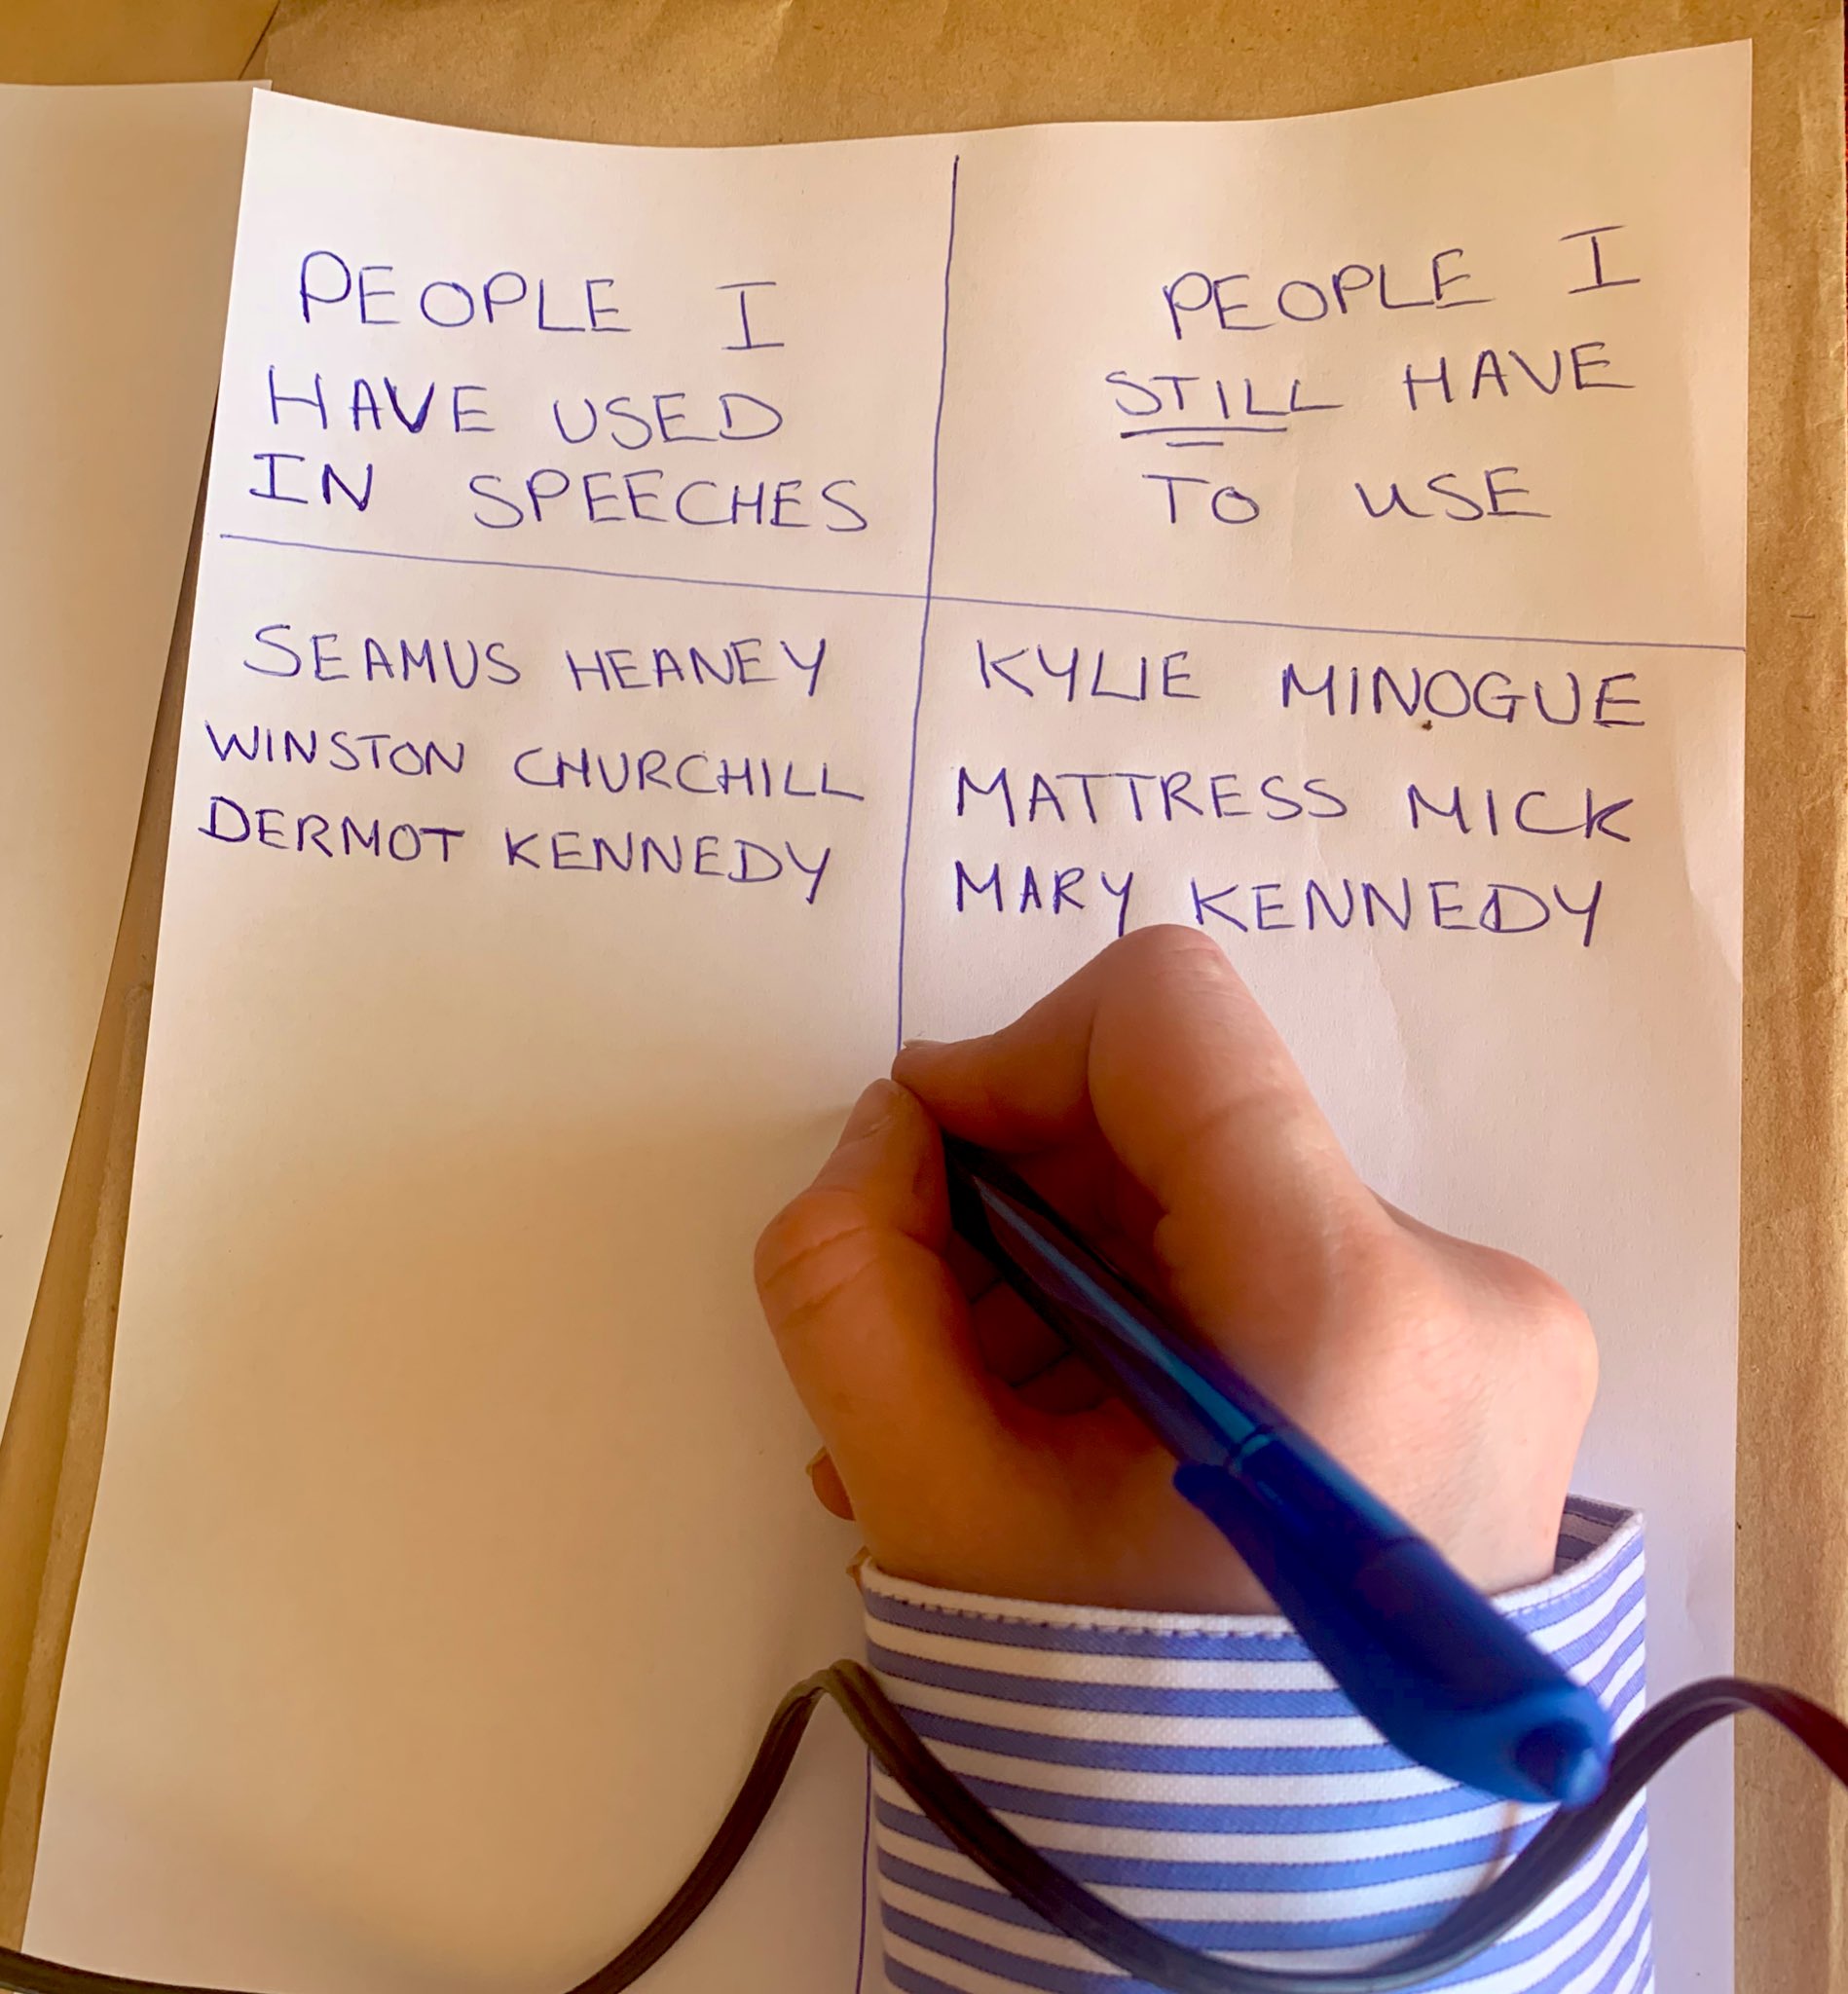 PEOPLE I
HAVE USED
IN SPEECHES
SEAMUS HEANEY
WINSTON CHURCHILL
DERMOT KENNEDY
PEOPLE I
STILL HAVE
TO USE
KYLIE MINOGUE
MATTRESS MICK
MARY KENNEDY